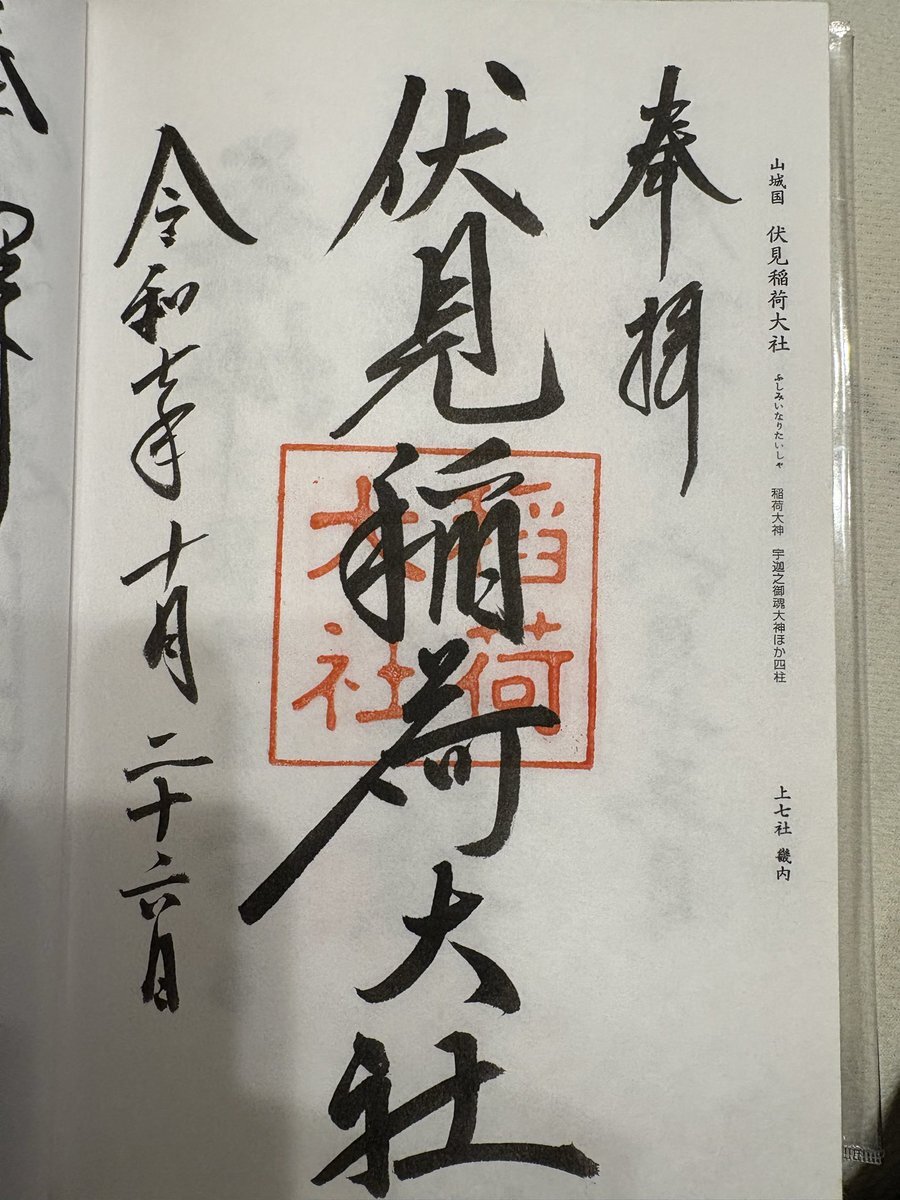 山城国 伏見稲荷大社 ふしみいなりたいしゃ 稲荷大神 宇迦之御魂大神ほか四柱 上七社 畿内
奉拝
伏見稲荷大社
稲荷
大社
令和七年十月二十六日